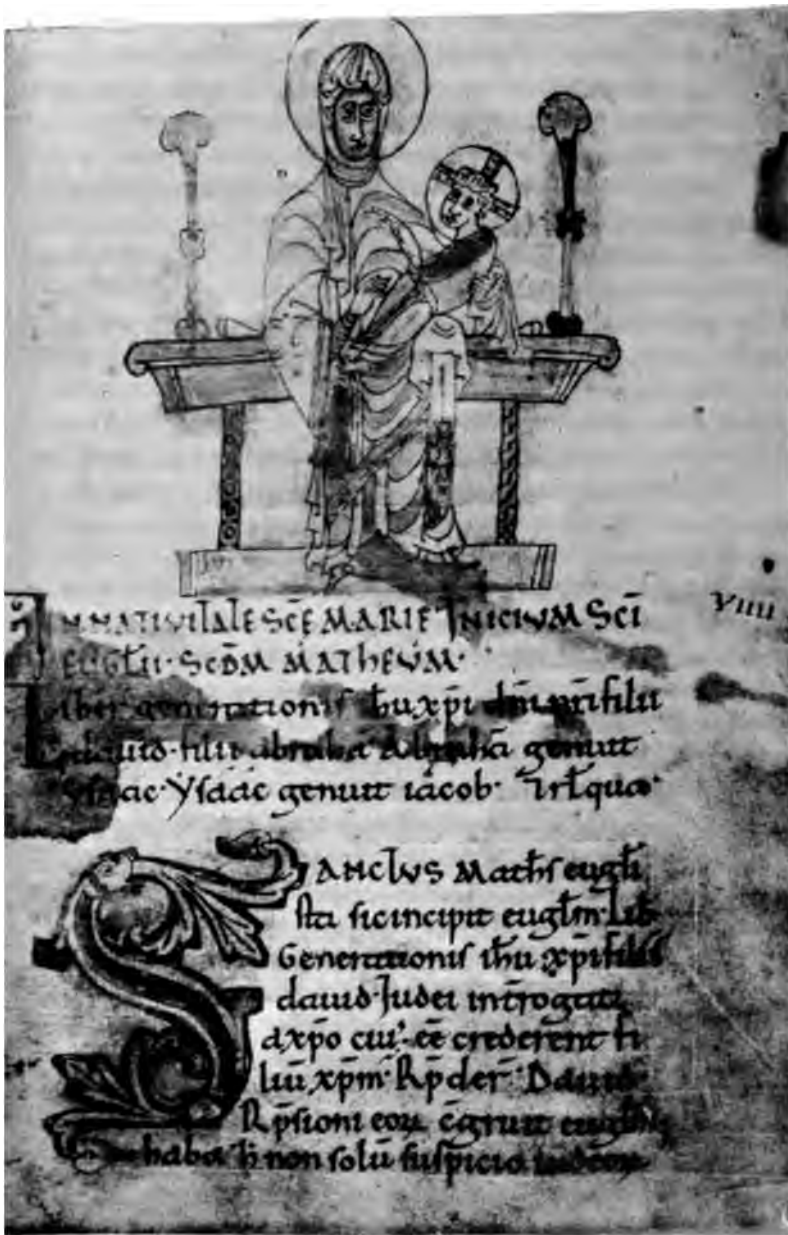 IN NATIVITATE SCĒ MARIE INICIVM SCĪ
EUGLII · SCDM MATHEVM ·
VIIII
Liber generationis ihu xpi dni nri filii
dauid · filii abrahā Abrahā genuit
ysaac · ysaac genuit iacob · 7 rlqua ·
SANCTVS Maths eugli
sta sic incipit euglm · Lib
Generationis ihu xpi filii
dauid · Iudei introgati
a xpo cui' ēē crederent fi
liū xpm · Rp̄der · Dauid ·
Rp̄sioni eoɿ
habat h non solū suspicio iudeoɿ